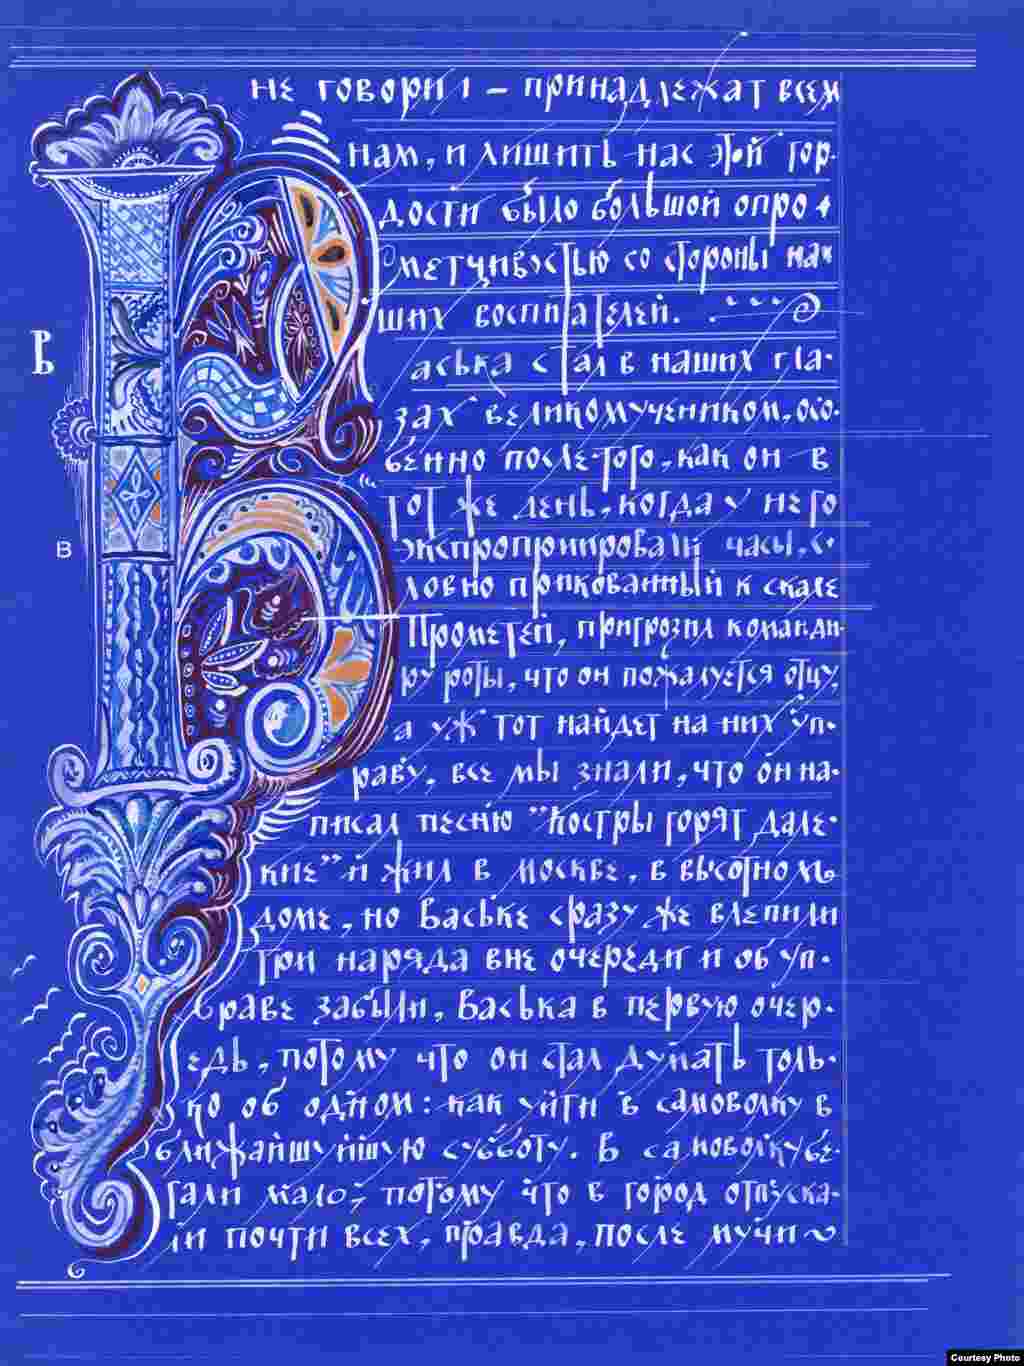 не говорил – принадлежат всем
нам, и лишить нас этой гор-
дости было большой опро-
метчивостью со стороны на-
ших воспитателей. . . . .
аська стал в наших гла-
зах великомучеником, осо-
бенно после того, как он в
тот же день, когда у него
экспроприировали часы, с-
ловно прикованный к скале
Прометей, пригрозил команди-
ру роты, что он пожалуется отцу,
а уж тот найдет на них уп-
раву, все мы знали, что он на-
писал песню "Костры горят дале-
кие" и жил в москве, в высотном
доме, но Ваське сразу же влепили
три наряда вне очереди и об уп-
раве забыли, Васька в первую очер-
едь, потому что он стал думать толь-
ко об одном: как уйти в самоволку в
ближайшуйшую субботу. В самоволку бе-
гали мало, потому что в город отпуска-
ли почти всех, правда, после мучи
В
В
Courtesy Photo